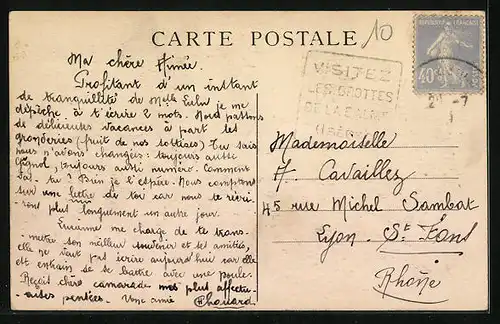 CARTE POSTALE
10
VISITEZ
LES GROTTES
DE LA BALME
(ISÈRE)
40c
Ma chère Aimée.
Profitant d'un instant
de tranquillité de Melle Lulu je me
dépêche à t'écrire 2 mots. Nous passons
de délicieuses vacances à part les
gronderies (fruit de nos sottises) Tu sais
nous n'avons changées: toujours aussi
toujours aussi numéro. Comment
vas-tu? Bien je l'espère. Nous comptons
sur une lettre de toi car nous te récri-
rons plus longuement un autre jour.
me charge de te trans-
mettre son meilleur souvenir et ses amitiés,
elle ne peut pas écrire aujourd'hui car elle
est entrain de se battre avec une poule.
Reçois chère camarade mes plus affectu-
euses pensées. Une amie Chouard
Mademoiselle
A. Cavaillez
45 rue Michel Sambat
Lyon. St Fons
Rhône